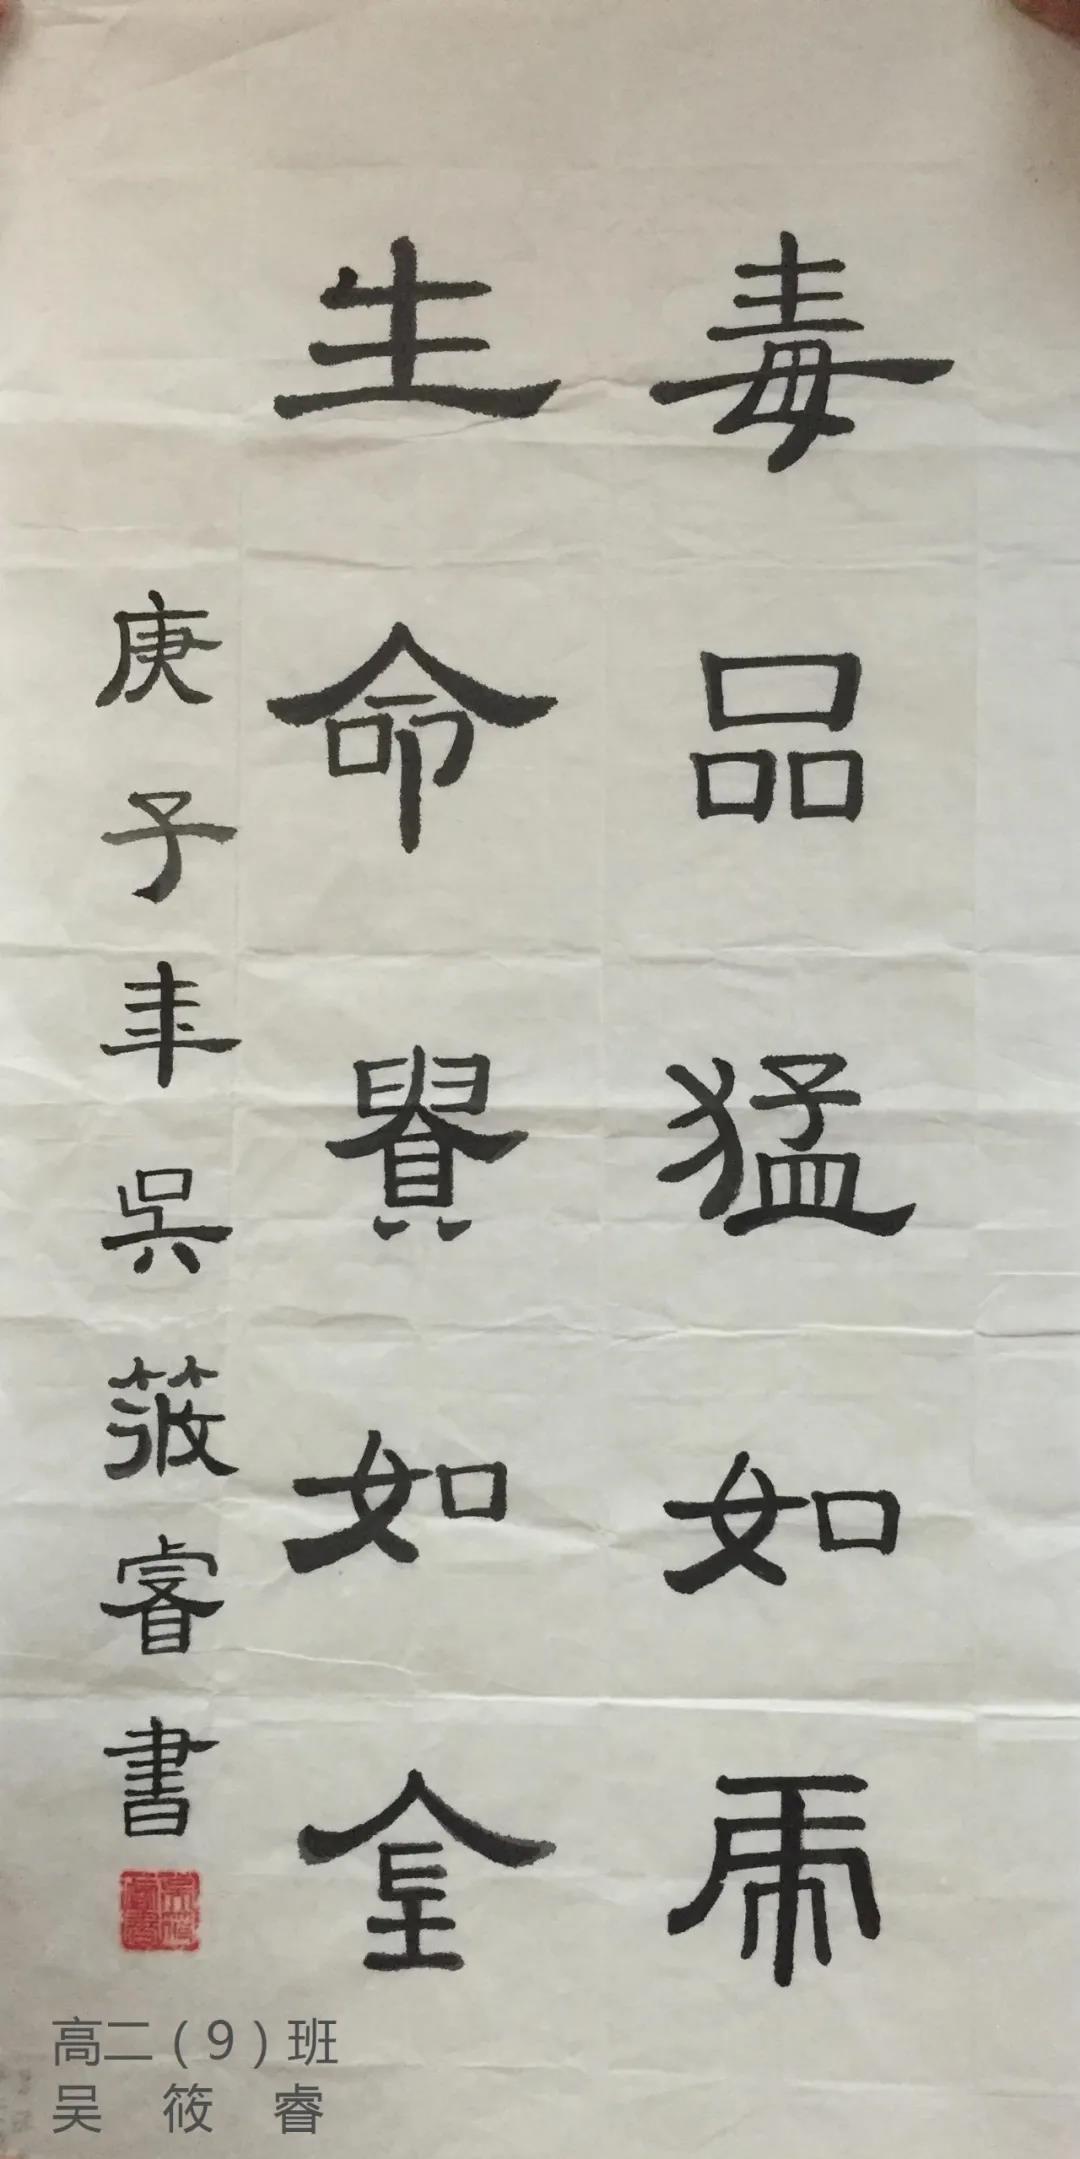 毒品猛如虎
生命貴如金
庚子年吳筱睿書
高二（9）班
吴筱睿